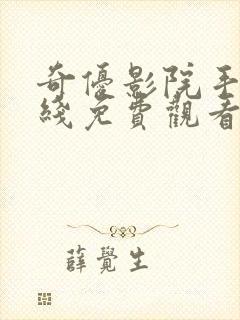 奇優影院手
綫免費觀看
薛覺生